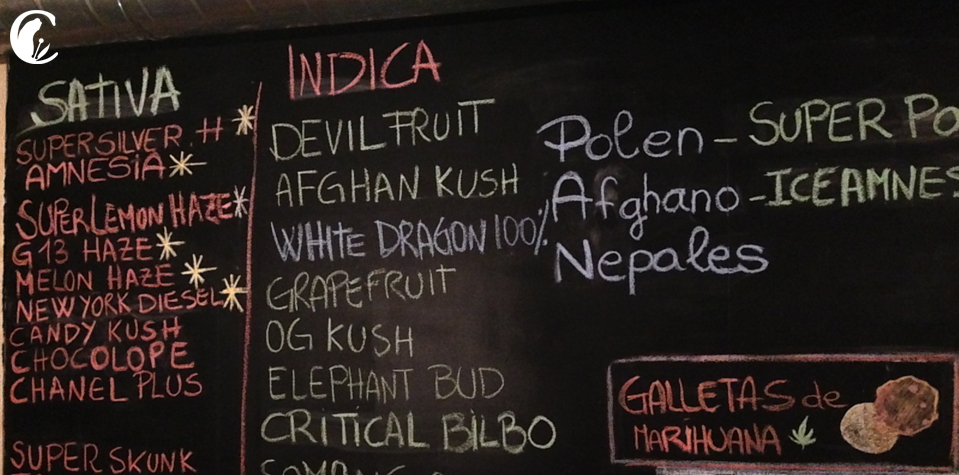 SATIVA
SUPERSILVER. H *
AMNESIA *
SUPERLEMON HAZE *
G13 HAZE *
MELON HAZE *
NEW YORK DIESEL *
CANDY KUSH
CHOCOLOPE
CHANEL PLUS
SUPER SKUNK
INDICA
DEVIL FRUIT
AFGHAN KUSH
WHITE DRAGON 100%
GRAPEFRUIT
OG KUSH
ELEPHANT BUD
CRITICAL BILBO
Polen - SUPER PO
Afghano - ICEAMNES
Nepales
GALLETAS de
MARIHUANA